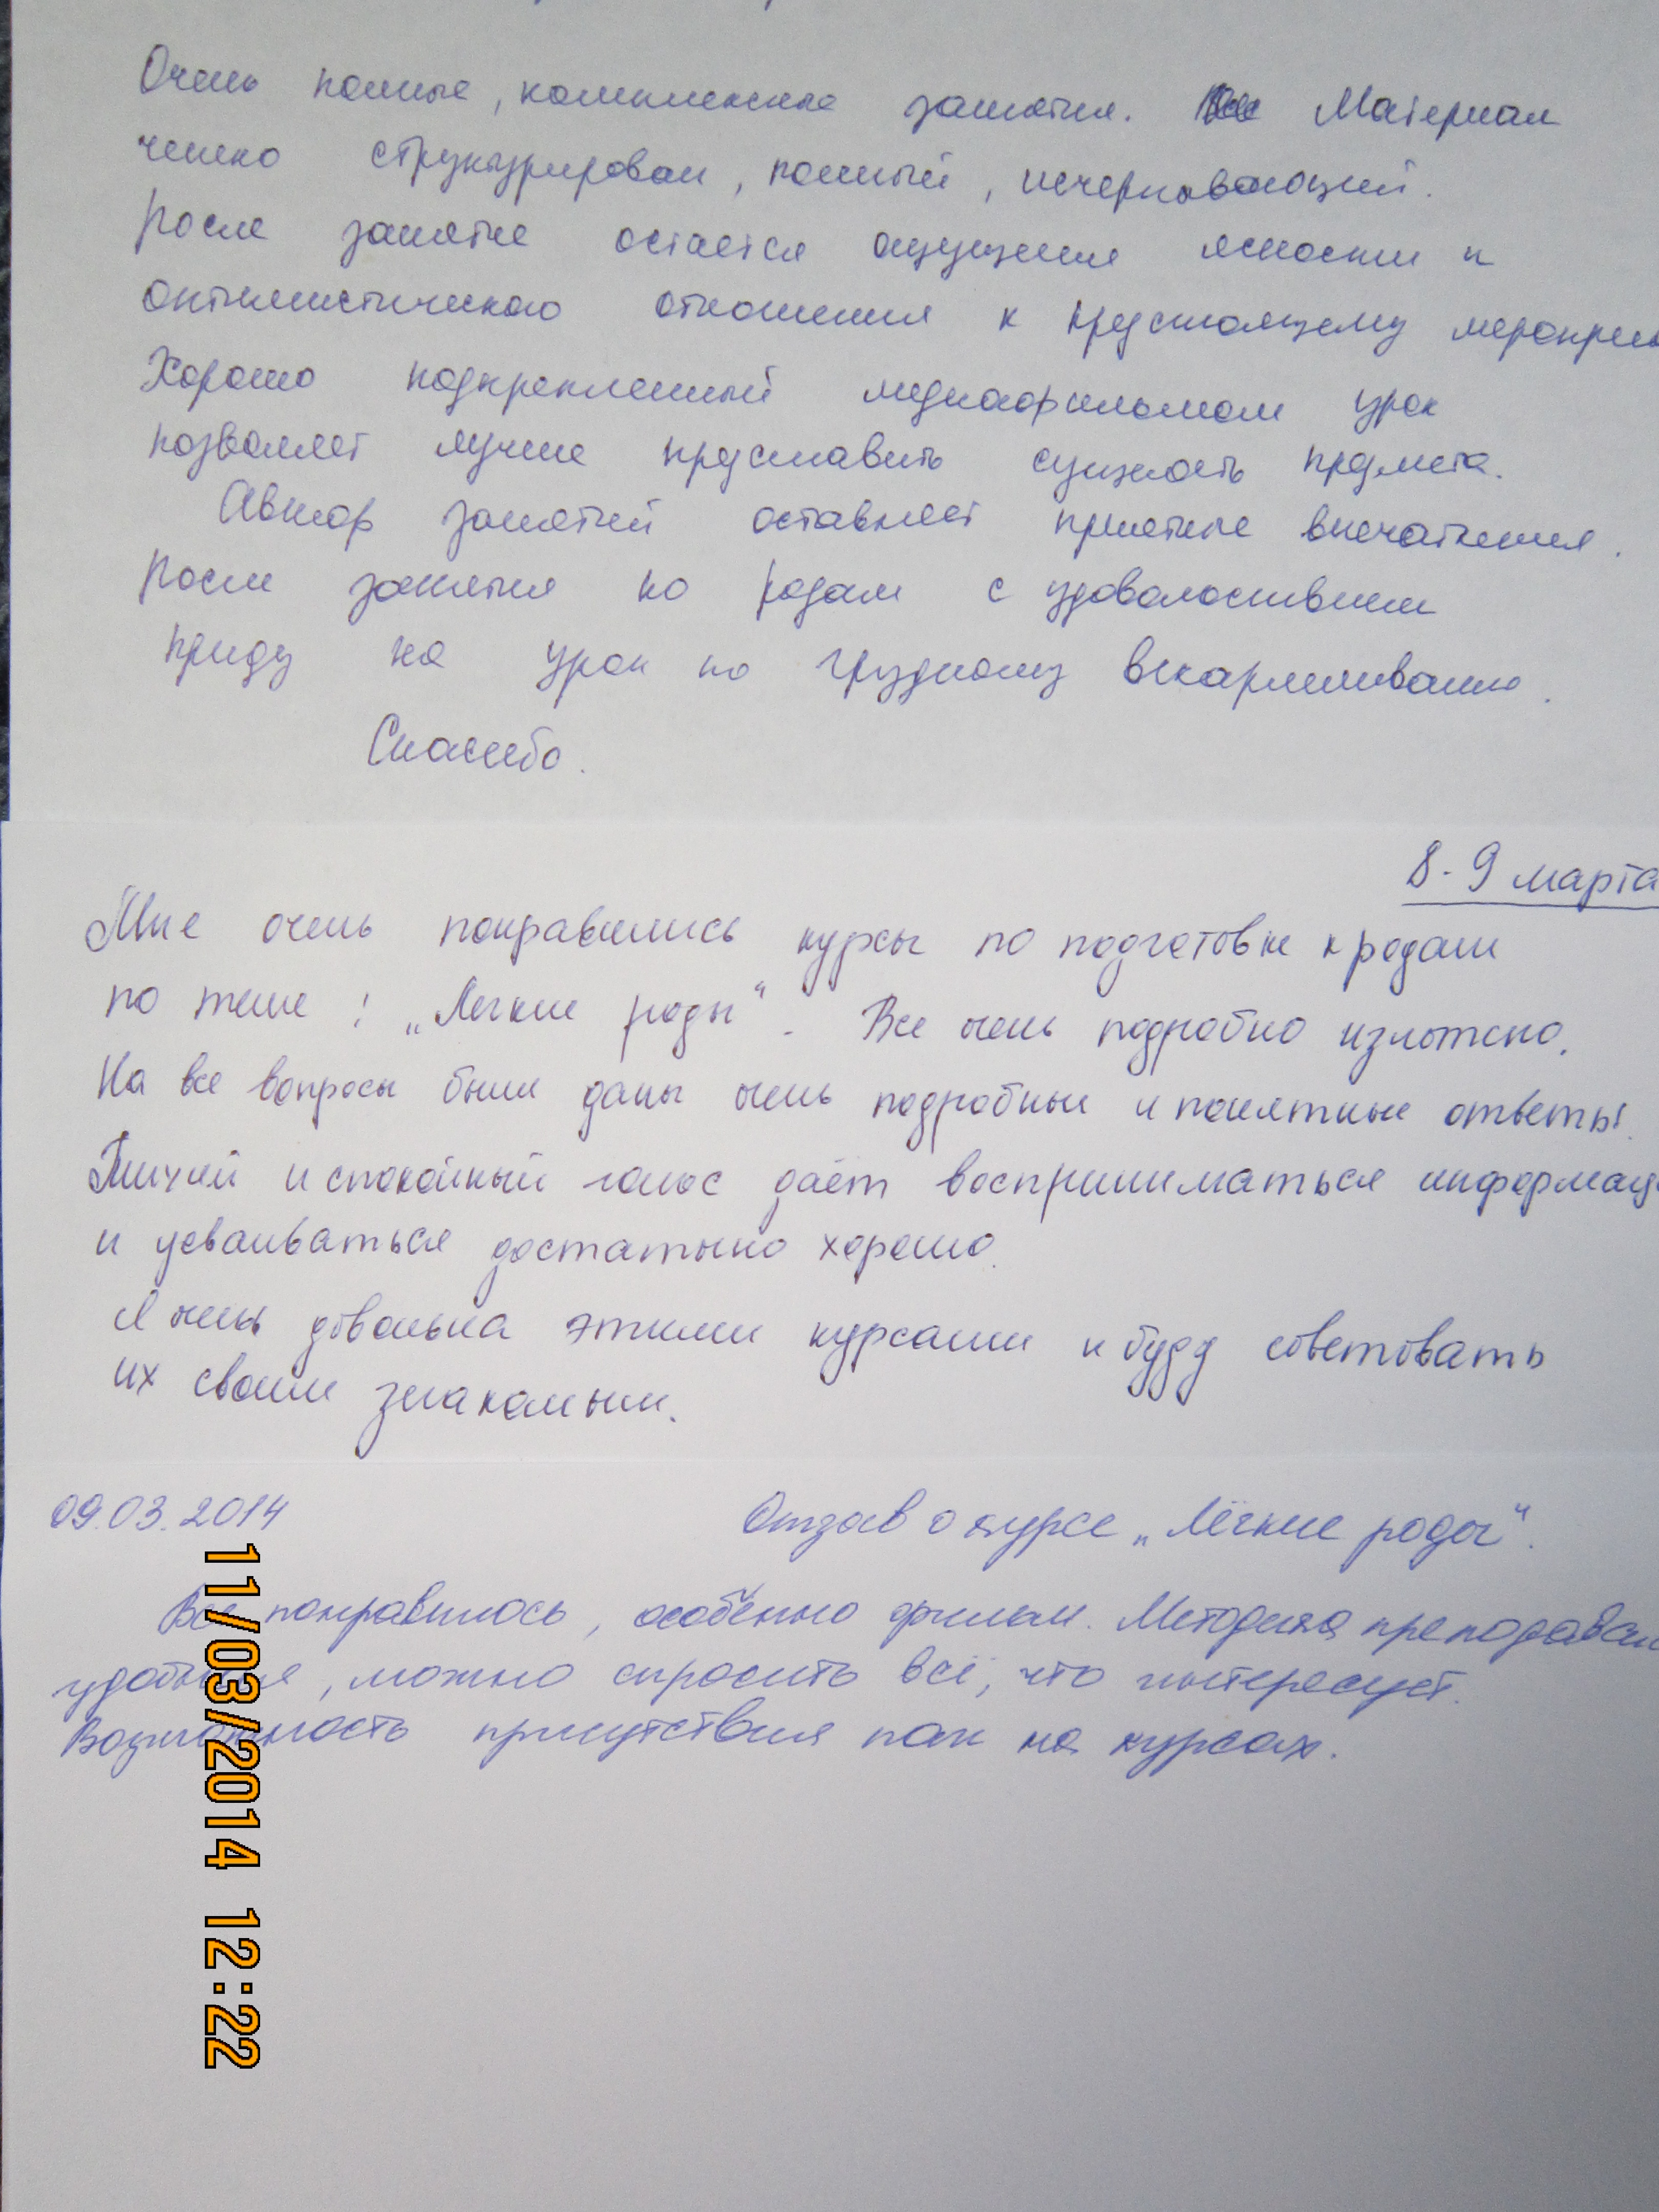 Очень полные, комплексные занятия. Все Материал
четко структурирован, полный, исчерпывающий.
После занятие остается ощущения ясности и
оптимистического отношения к предстоящему меропри
Хорошо подкрепленный медиафильмом урок
позволяет лучше представить сущность предмета.
Автор занятий оставляет приятные впечатления.
После занятия по родам с удовольствием
приду на урок по грудному вскармливанию.
Спасибо.
8-9 марта
Мне очень понравились курсы по подготовке к родам
по теме: „Легкие роды“. Все очень подробно изложено.
На все вопросы были даны очень подробные и понятные ответы.
Тихий и спокойный голос даёт восприниматься информац
и усваиваться достаточно хорошо.
Я очень довольна этими курсами и буду советовать
их своим знакомым.
09.03.2014 Отзыв о курсе „Лёгкие роды“.
Всё понравилось, особенно фильм. Методика преподаван
удобная, можно спросить всё, что интересует.
Возможность присутствия пап на курсах.
11/03/2014 12:22